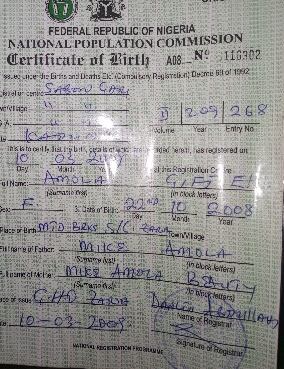 FEDERAL REPUBLIC OF NIGERIA
NATIONAL POPULATION COMMISSION
Certificate of Birth A08 Nº 5116902
issued under the Births and Deaths Etc. (Compulsory Registration) Decree 69 of 1992
SABON GARI
wn/Village " "
II 209 268
Volume Year Entry No.
KADUNA
This is to certify that the birth, details of which are recorded herein, has registered on
10 03 2009
Day Month Year at this Registration Centre
AMOLA GIFT E!
Full Name: (Surname first) (in block letters)
Sex: F. Date of Birth: 22nd 10 2008
Day Month Year
Place of Birth MTD BRKS S/G. ZARIA Town/Village
Full Name of Father: MIKE AMOLA
(Surname first) (in block letters)
Full name of Mother: MIKE AMOLA BEAUTY
(Surname first) (in block letters)
Place of Issue CHD ZARIA
10-03-2009 Name of Registrar
NATIONAL REGISTRATION PROGRAMME Signature of Registrar